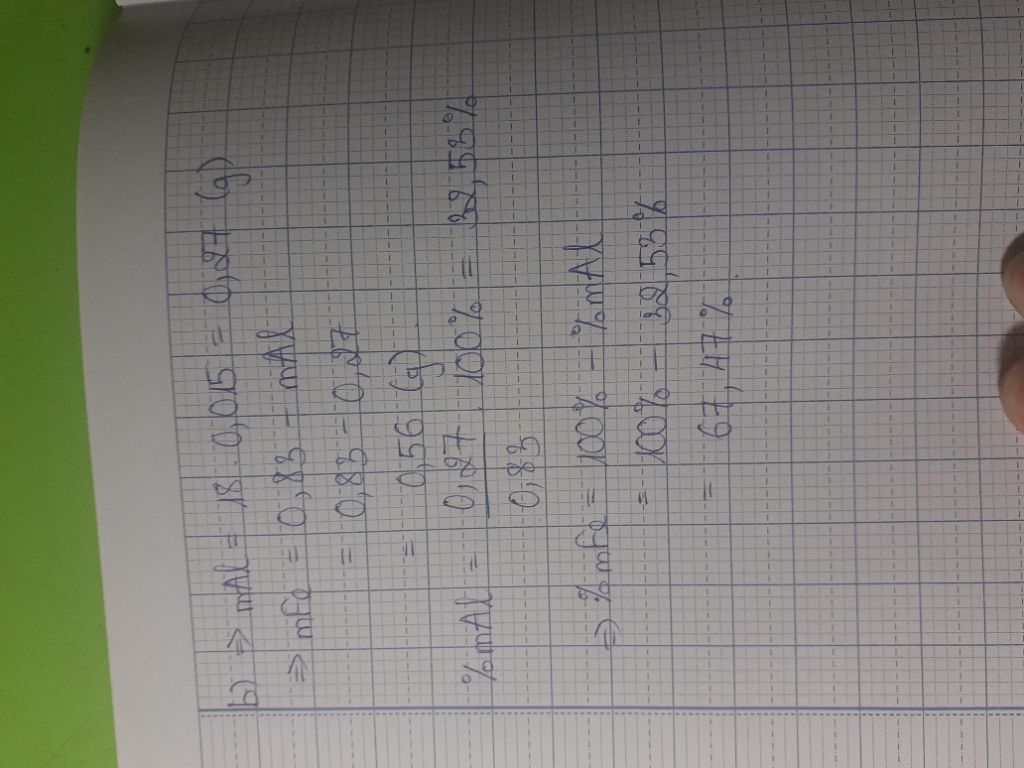 b) => mAl = 18.0,015 = 0,27 (g)
=> mFe = 0,83 - mAl
= 0,83 - 0,27
= 0,56 (g)
%mAl = 0,27/0,83 . 100% = 32,53%
=> %mFe = 100% - %mAl
= 100% - 32,53%
= 67,47%